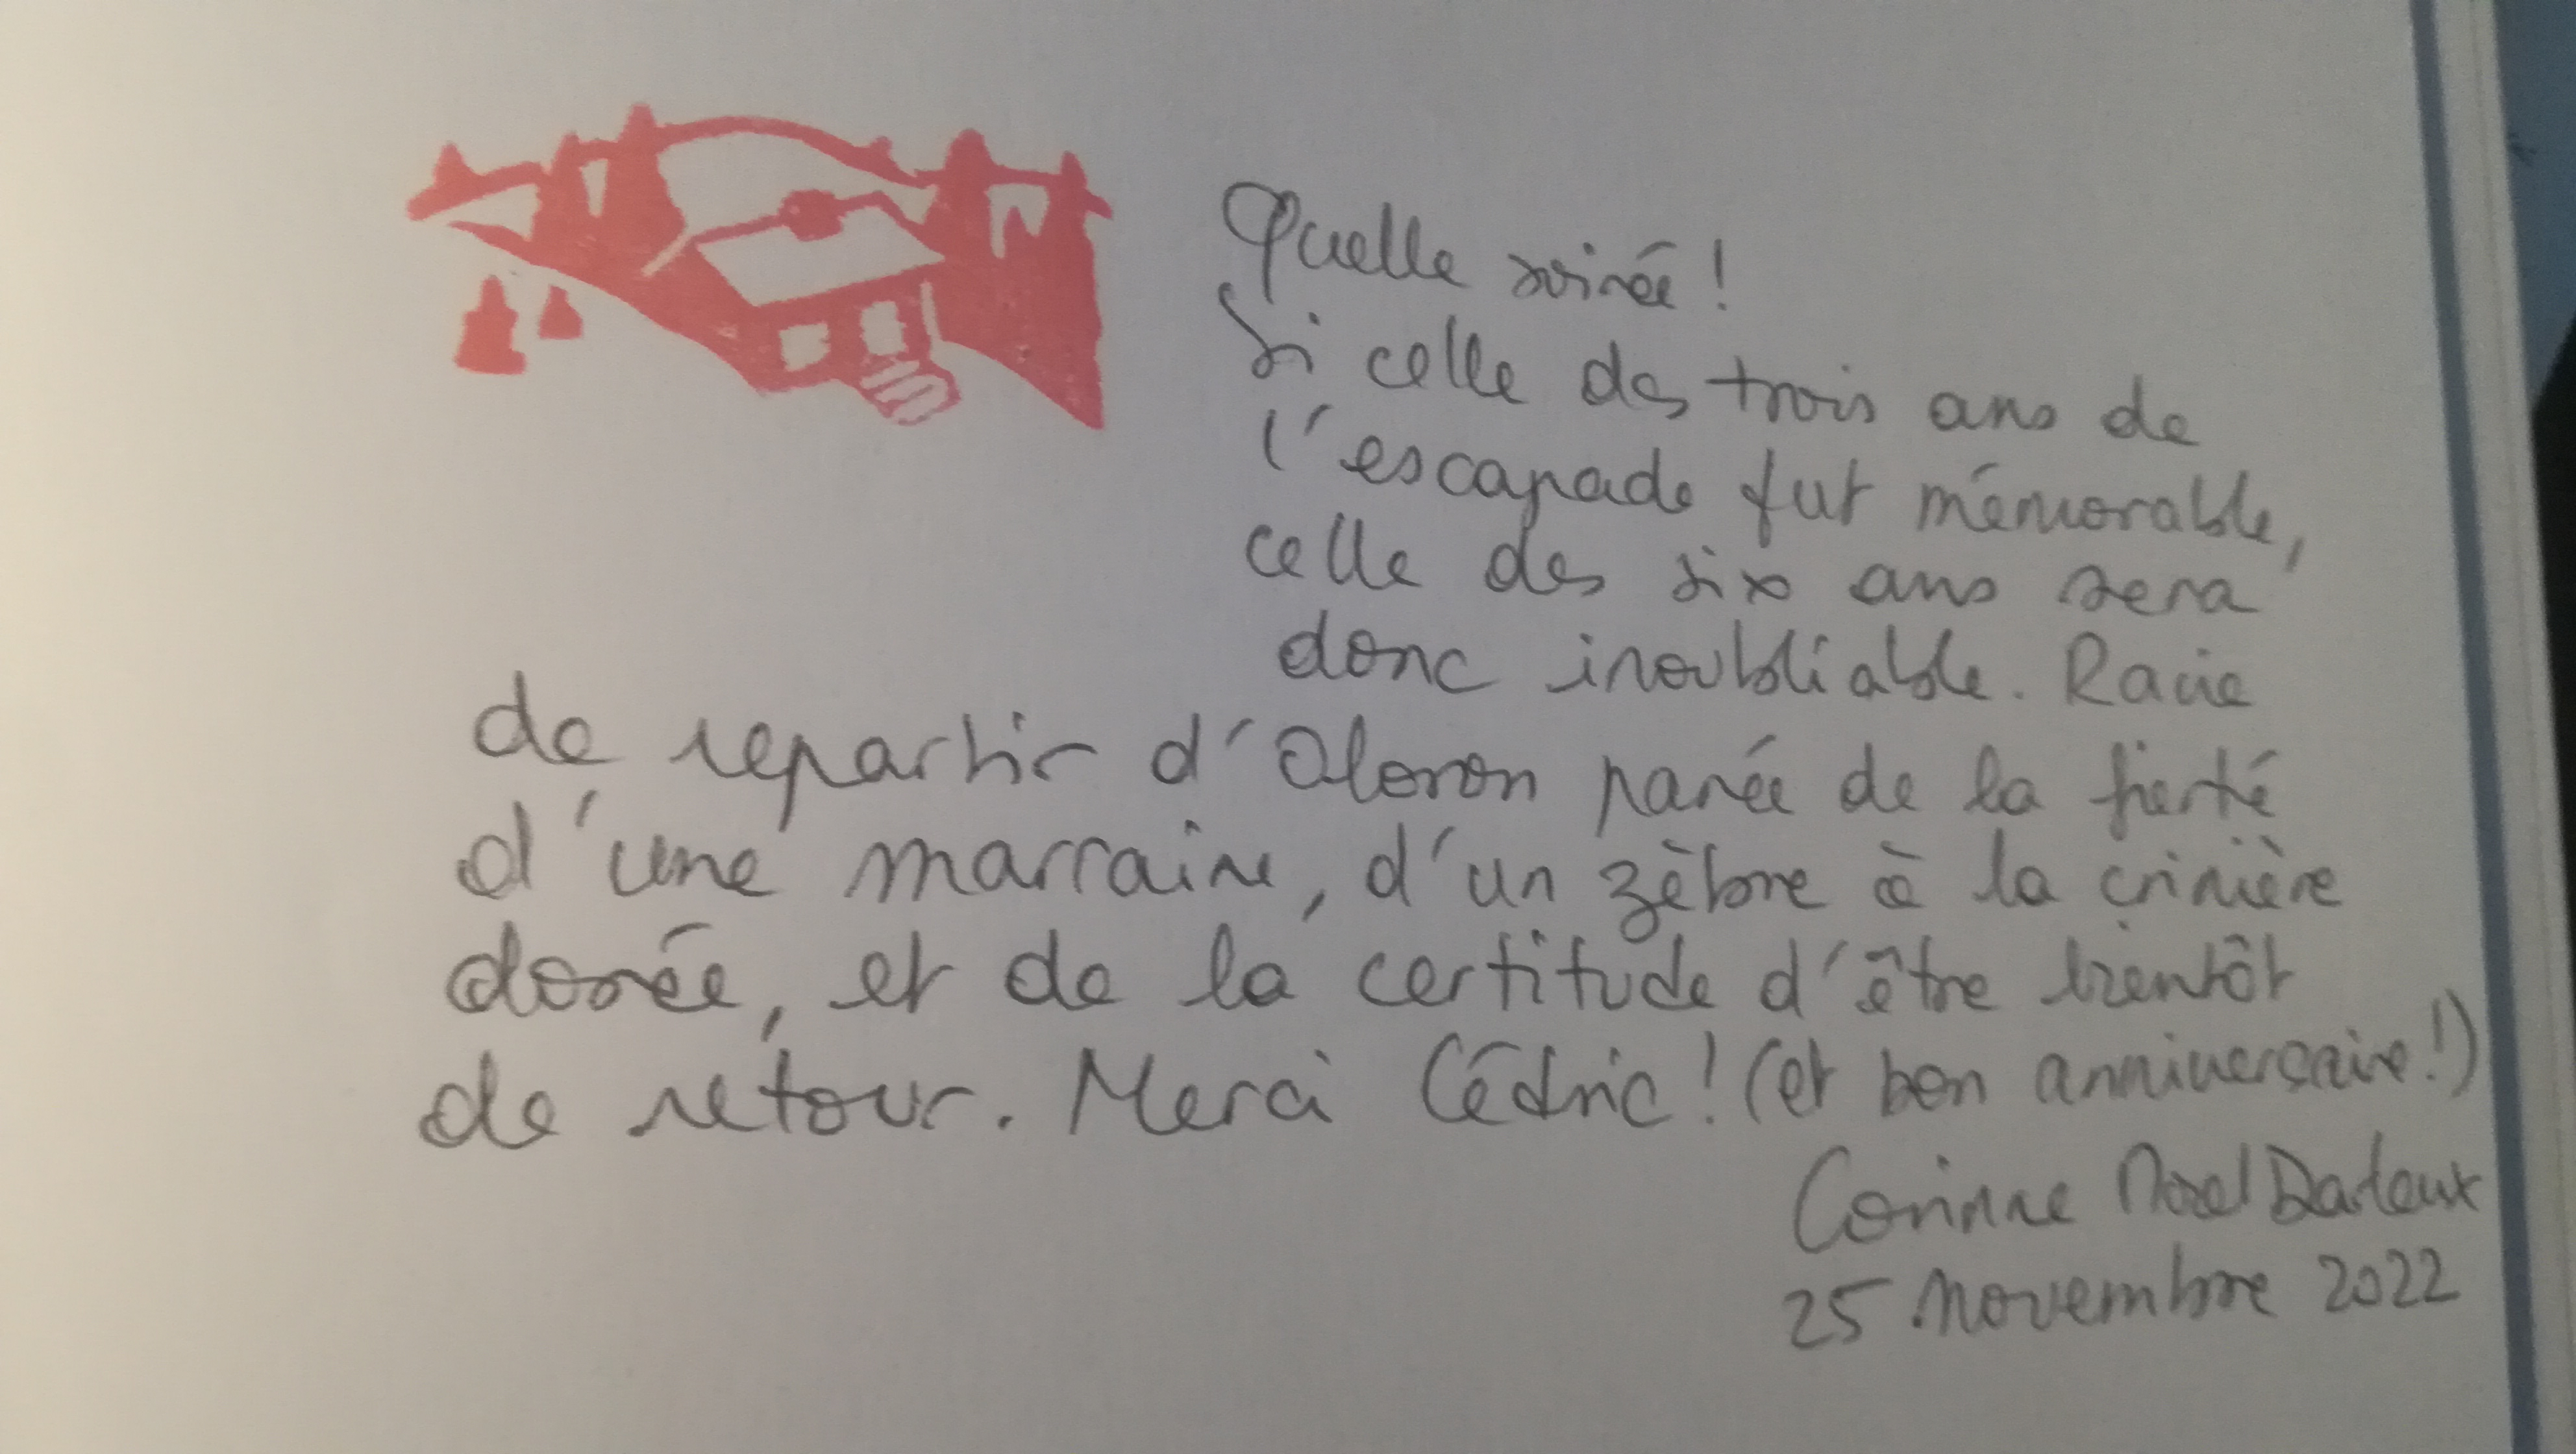 Quelle soirée !
Si celle des trois ans de
l'escapade fut mémorable,
celle des six ans sera
donc inoubliable. Ravie
de repartir d'Oloron parée de la fierté
d'une marraine, d'un zèbre à la crinière
dorée, et de la certitude d'être bientôt
de retour. Merci Cédric ! (et bon anniversaire !)
Corinne Morel Darleux
25 novembre 2022